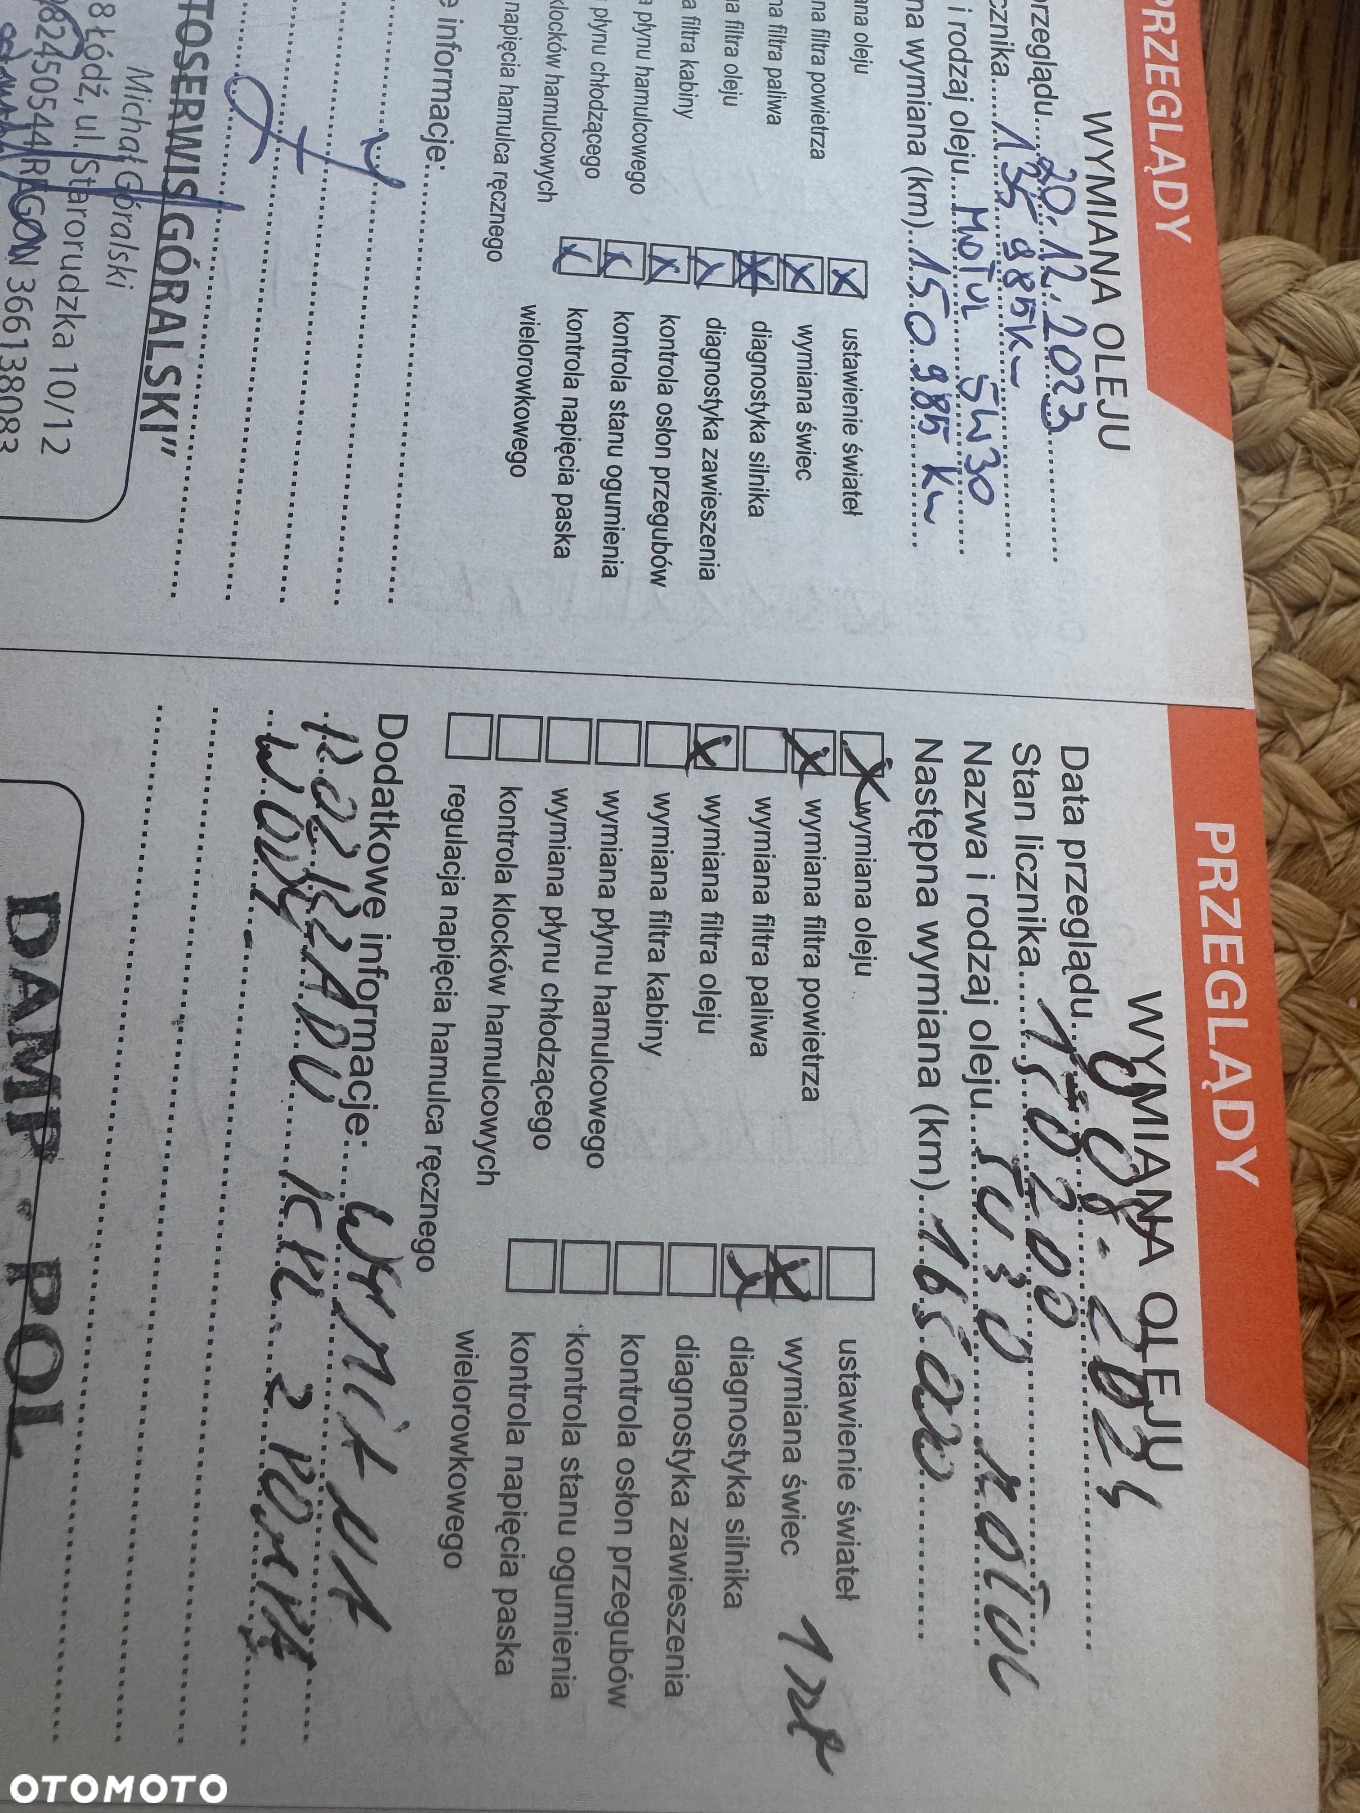 PRZEGLĄDY
WYMIANA OLEJU
rzeglądu 20.12.2023
cznika 135 985 km
i rodzaj oleju Motul 5W30
na wymiana (km) 150 985 km
ana oleju
na filtra powietrza
na filtra paliwa
na filtra oleju
a filtra kabiny
a płynu hamulcowego
płynu chłodzącego
klocków hamulcowych
napięcia hamulca ręcznego
ustawienie świateł
wymiana świec
diagnostyka silnika
diagnostyka zawieszenia
kontrola osłon przegubów
kontrola stanu ogumienia
kontrola napięcia paska
wielorowkowego
e informacje:
TOSERWIS GÓRALSKI"
Michał Góralski
8 Łódź, ul. Starorudzka 10/12
8245 REGON 366138083
PRZEGLĄDY
WYMIANA OLEJU
Data przeglądu 08-2024
Stan licznika 150200
Nazwa i rodzaj oleju 5W30 MOTUL
Następna wymiana (km) 165 000
wymiana oleju
wymiana filtra powietrza
wymiana filtra paliwa
wymiana filtra oleju
wymiana filtra kabiny
wymiana płynu hamulcowego
wymiana płynu chłodzącego
kontrola klocków hamulcowych
regulacja napięcia hamulca ręcznego
ustawienie świateł
wymiana świec 1 szt
diagnostyka silnika
diagnostyka zawieszenia
kontrola osłon przegubów
kontrola stanu ogumienia
kontrola napięcia paska
wielorowkowego
Dodatkowe informacje: WYMIANA
ROZRZĄDU KPL. Z POMPĄ
WODY.
DAMP-POL
OTOMOTO